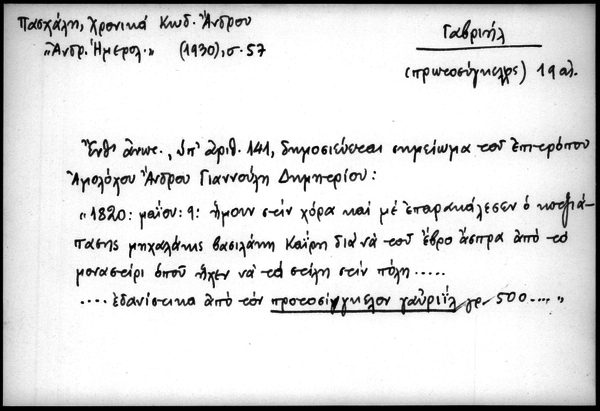 Πασχάλη, Χρονικά Κωδ. Ἄνδρου
"Ἀνδρ. Ἡμερολ." (1930), σ. 57
Γαβριήλ
(πρωτοσύγκελλος) 19 αἰ.
Ἔνθ' ἄνωτ., ὑπ' ἀριθ. 141, δημοσιεύεται σημείωμα τοῦ ἐπιτρόπου
Ἀμολόχου Ἄνδρου Γιαννούλη Δημητρίου:
"1820: μαΐου: 9: ἤμουν στὴν χόρα καὶ μὲ ἐπαρακάλεσεν ὁ
πασης μηχαλάκης βασιλάκη Καΐρη διὰ νὰ τοῦ ἔβρο ἄσπρα ἀπὸ τὸ
μοναστείρι ὁποῦ ἤχεν νὰ τὰ στείλη στὴν πόλη .....
.... ἐδανίστικα ἀπὸ τὸν προτοσίγγκελον γαὔριὴλ γρ. 500 .... "